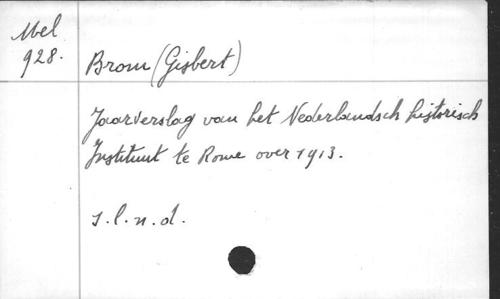 Mel
928.
Brom (Gisbert)
Jaarverslag van het Nederlandsch historisch
Instituut te Rome over 1913.
s.l.n.d.